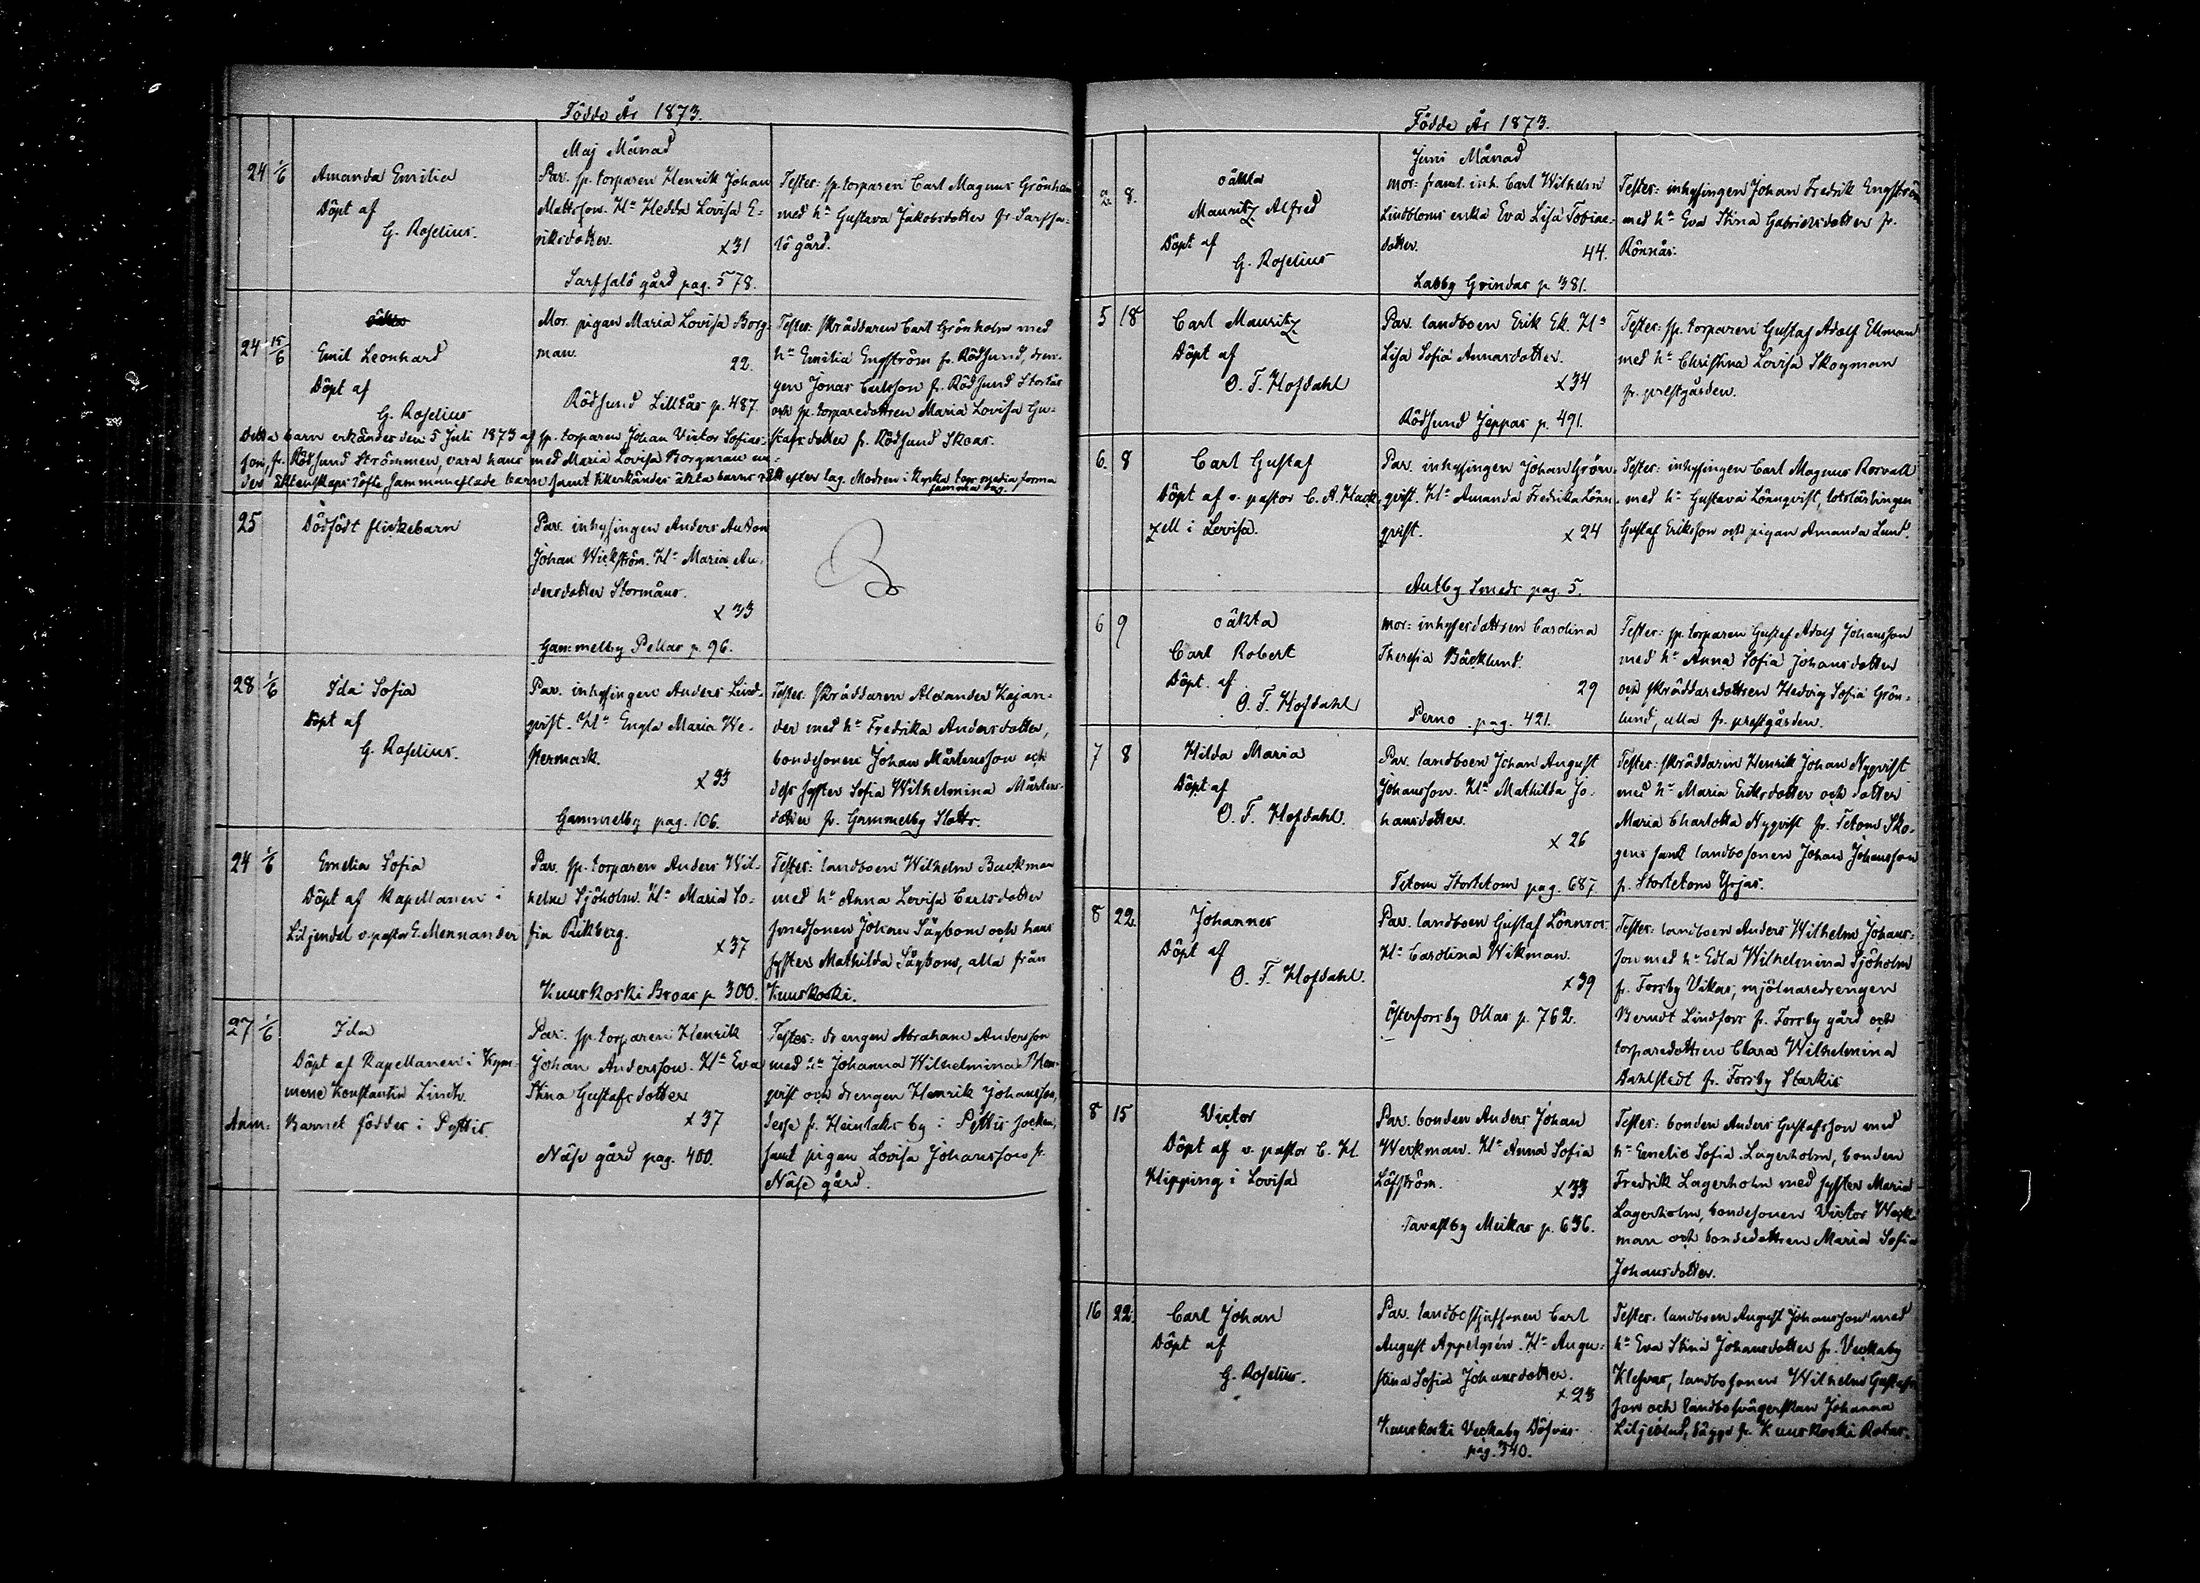 Födde År 1873.
Maj Månad
24 1/6 Amanda Emilia
Döpt af
G. Roselius.
Par. sp. torparen Henrik Johan
Mattsson. Ha Hedda Lovisa E-
riksdotter.
x 31
Sarfsalö gård pag. 578.
Tester: sp. torparen Carl Magnus Grönholm
med ha Gustava Jakobsdotter fr. Sarfsa-
lö gård.
24 15/6 Emil Leonhard
Döpt af
G. Roselius
Mor. pigan Maria Lovisa Borg-
man.
22.
Rödsund Lillkås p. 487.
Tester: skräddaren Carl Grönholm med
ha Emilia Engström fr. Rödsund, dren-
gen Jonas Carlsson fr. Rödsund Storkås
och sp. torparedottren Maria Lovisa Gu-
stafsdotter fr. Rödsund Skoas.
Detta barn erkändes den 5 Juli 1873 af sp. torparen Johan Victor Sofias-
son, fr. Rödsund Strömmen, vara hans med Maria Lovisa Borgman un-
der äktenskaps löfte sammanaflade barn samt tillerkändes äkta barns rätt efter lag. Modren i Kyrka
samma dag.
25 Dödfödt flickebarn
Par. inhysingen Anders Anton
Johan Wickström. Ha Maria An-
dersdotter Stormåns.
x 33
Gammelby Pellas p. 96.
28 1/6 Ida Sofia
Döpt af
G. Roselius.
Par. inhysingen Anders Lind-
qvist. Ha Engla Maria We-
stermark.
x 33
Gammelby pag. 106.
Tester: skräddaren Alexander Kajan-
der med ha Fredrika Andersdotter,
bondesonen Johan Mårtensson och
dess syster Sofia Wilhelmina Mårtens-
dotter fr. Gammelby Slotts.
24 1/6 Emelia Sofia
Döpt af Kapellanen i
Liljendal v. pastor G. Mennander
Par. sp. torparen Anders Wil-
helm Sjöholm. Ha Maria So-
fia Rikberg.
x 37
Kuuskoski Broas p. 300.
Tester: landboen Wilhelm Backman
med ha Anna Lovisa Carlsdotter
smedsonen Johan Sågbom och hans
syster Mathilda Sågbom, alla från
Kuuskoski.
27 1/6 Ida
Döpt af Kapellanen i Kym-
mene Konstantin Lindh.
Anm: Barnet föddes i Pyttis.
Par. sp. torparen Henrik
Johan Andersson. Ha Eva
Stina Gustafsdotter
x 37
Näse gård pag. 400.
Tester: drengen Abraham Andersson
med ha Johanna Wilhelmina Blom-
qvist och drengen Henrik Johansson,
desse fr. Heinlaks by i Pyttis socken,
samt pigan Lovisa Johansson fr.
Näse gård.
Födde År 1873.
Juni Månad
2 8. oäkta
Mauritz Alfred
Döpt af
G. Roselius
mor: framl. inh. Carl Wilhelm
Lindbloms enka Eva Lisa Tobias-
dotter.
44.
Labby Grindas p. 381.
Tester: inhysingen Johan Fredrik Engström
med ha Eva Stina Gabrielsdotter fr.
Rönnäs.
5 18 Carl Mauritz
Döpt af
O. F. Hofdahl
Par. landboen Erik Ek. Ha
Lisa Sofia Annasdotter.
x 34
Rödsund Jeppas p. 491.
Tester: sp. torparen Gustaf Adolf Ekman
med ha Christina Lovisa Skogman
fr. prestgården.
6. 8 Carl Gustaf
Döpt af v. pastor C. A. Hack-
zell i Lovisa.
Par. inhysingen Johan Grön-
qvist. Ha Amanda Fredrika Lönn-
qvist.
x 24
Antby Smeds pag 5.
Tester: inhysingen Carl Magnus Rosvall
med ha Gustava Lönnqvist, lotslärlingen
Gustaf Eriksson och pigan Amanda Lund.
6 9 oäkta
Carl Robert
Döpt af
O. F. Hofdahl
mor: inhysesdottren Carolina
Theresia Bäcklund.
29
Perno pag. 421.
Tester: sp. torparen Gustaf Adolf Johansson
med ha Anna Sofia Johansdotter
och skräddaredottren Hedvig Sofia Grön-
lund, alla fr. prestgården.
7 8 Hilda Maria
Döpt af
O. F. Hofdahl.
Par. landboen Johan August
Johansson. Ha Mathilda Jo-
hansdotter.
x 26
Tetom Stortetom pag. 687
Tester: skräddaren Henrik Johan Nyqvist
med ha Maria Eriksdotter och dotter
Maria Charlotta Nyqvist fr. Tetom Sko-
gens samt landbosonen Johan Johansson
fr. Stortetom Yrjas.
8 22. Johannes
Döpt af
O. F. Hofdahl.
Par. landboen Gustaf Lönnros
Ha Carolina Wikman.
x 39
Österforsby Ollas p. 762.
Tester: landboen Anders Wilhelm Johans-
son med ha Edla Wilhelmina Sjöholm
fr. Forsby Vikas, mjölnaredrengen
Berndt Lindfors fr. Forsby gård och
torparedottren Clara Wilhelmina
Dahlstedt fr. Forsby Starkis
8 15 Victor
Döpt af v. pastor C. H.
Klipping i Lovisa
Par. bonden Anders Johan
Werkman. Ha Anna Sofia
Löfström.
x 33
Tavastby Meikas p. 636.
Tester: bonden Anders Gustafsson med
ha Emelie Sofia Lagerholm, bonden
Fredrik Lagerholm med syster Maria
Lagerholm, bondesonen Victor Werk-
man och bondedottren Maria Sofia
Johansdotter.
16 22. Carl Johan
Döpt af
G. Roselius.
Par. landbostjufsonen Carl
August Appelgrén. Ha Augu-
stina Sofia Johansdotter.
x 23
Kuuskoski Veckaby Döfvas
pag. 340.
Tester: landboen August Johansson med
ha Eva Stina Johansdotter fr. Veckaby
Klesvas, landbosonen Wilhelm Gustafs-
son och landbosvägerskan Johanna
Liljeblad, bägge fr. Kuuskoski Rotas.